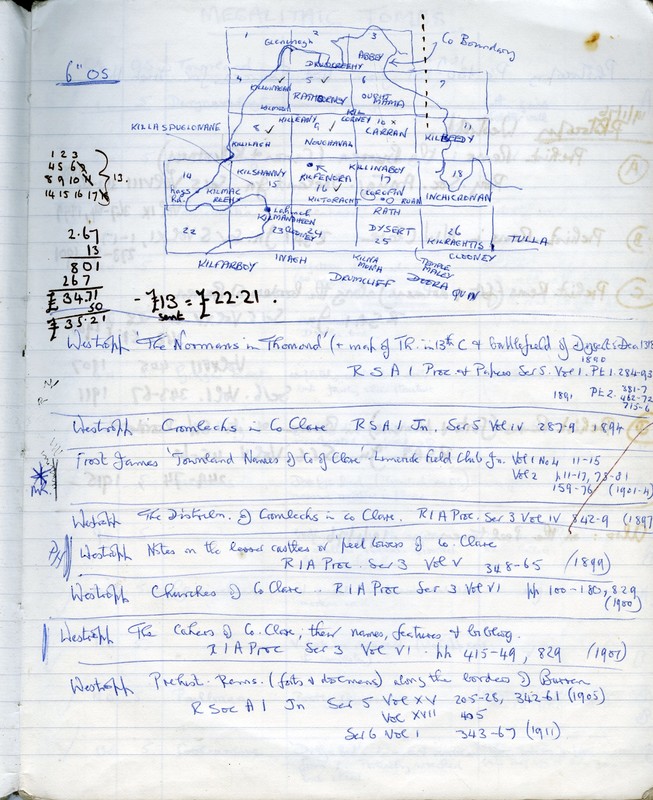 6" OS
1 2 3
Gleninagh ABBEY
DRUMCREEHY
Co Boundary
4 5 6 7
RATHBORNEY OUGHT
MAMA
KILLEANY
8 9 10 x 11
CARRAN KILKEEDY
KILLASPUGLONANE
KILLILAGH NOUGHAVAL
14 KILSHANNY KILFENORA KILLINABOY 18
15 16 17
COROFIN INCHICRONAN
KILTORAGHT RUAN
Lahinch
KILMANAHEEN RATH
22 23 CLOONEY 24 DYSERT 26
25 KILRAGHTIS TULLA
CLOONEY
KILFARBOY INAGH KILNA
MONA
DRUMCLIFF TEMPLE
MALEY
DOORA QUIN
1 2 3
4 5 6
8 9 10
14 15 16 17
13.
2.67
13
801
267
£ 34.71
50
£ 35.21
- £13 = £22.21.
sent
Westropp The Normans in Thomond (+ map of Th. in 13th C & battlefield of Dysert O Dea 1318
1890
R S A I Proc & Papers Ser 5. Vol 1. Pt 1. 284-93
1891 Pt 2. 381-7
462-72
715-6
Westropp Cromlechs in Co Clare R S A I Jn. Ser 5 Vol IV 287-9 1894
Frost James 'Townland Names of Co of Clare' Limerick Field Club Jn. Vol 1 No 4 11-15
Vol 2
159-76 (1901-4)
Westropp The Distribn. of Cromlechs in Co Clare. R I A Proc. Ser 3 Vol IV 542-9 (1897
Westropp Notes on the lesser castles or 'peel towers of Co. Clare
R I A Proc. Ser 3 Vol V 348-65 (1899)
Westropp Churches of Co Clare .. R I A Proc Ser 3 Vol VI pp 100-180, 829
(1900)
Westropp The Cahers of Co. Clare, their names, features & bibliog.
R I A Proc Ser 3 Vol VI. pp 415-49, 829 (1901)
Westropp Prehist. Rems. (forts & dolmens) along the borders of Burren
R Soc A I Jn Ser 5 Vol XV 205-28, 342-61 (1905)
Vol XVII 405
Ser 6 Vol 1 343-67 (1911)